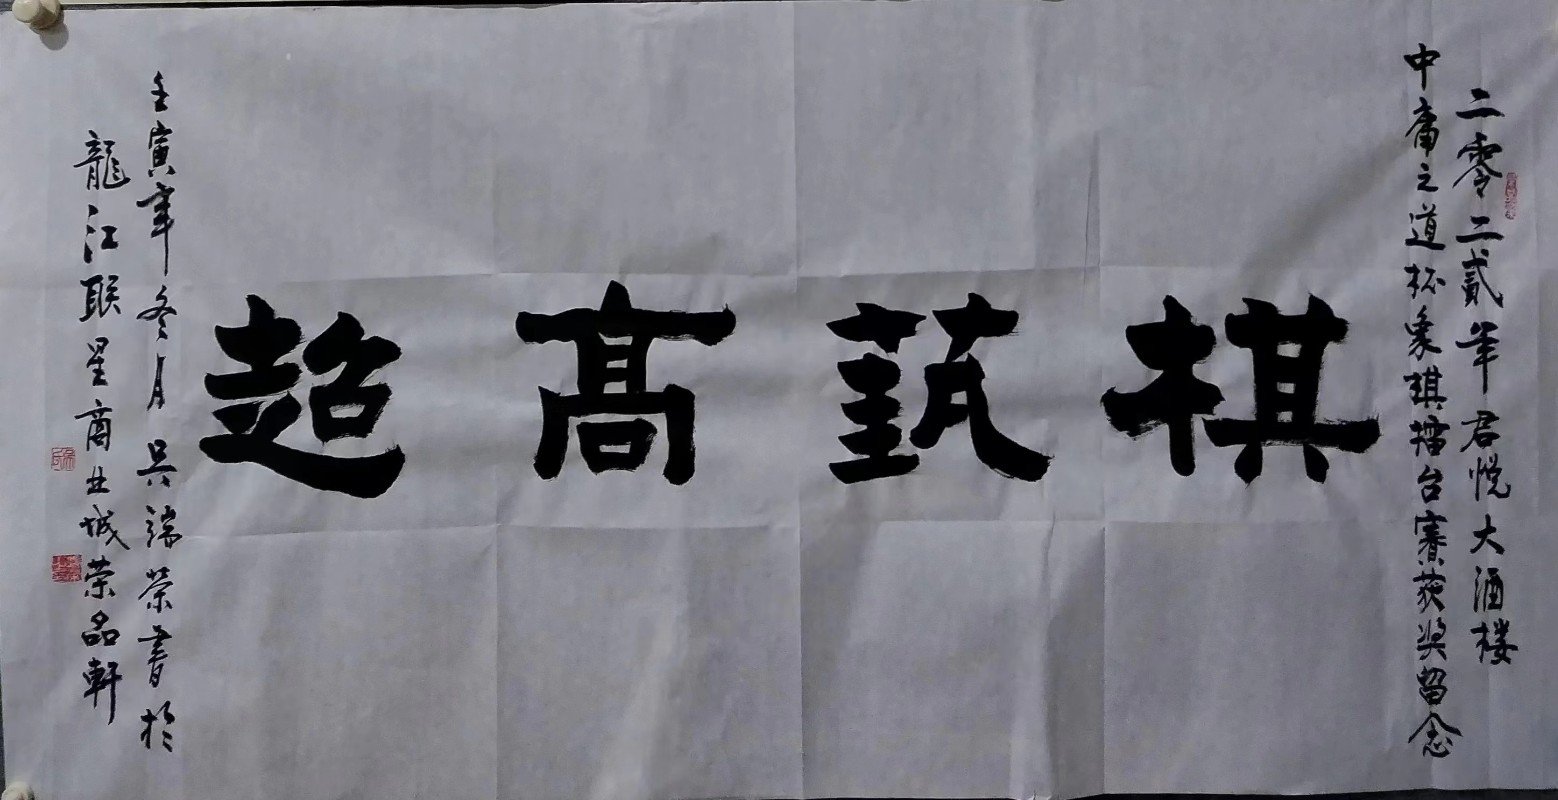 二零二貳年君悦大酒楼
中庸之道杯象棋擂台赛获奖留念
棋藝高超
壬寅年冬月吴瑞荣書於
龍江联星商业城荣品軒